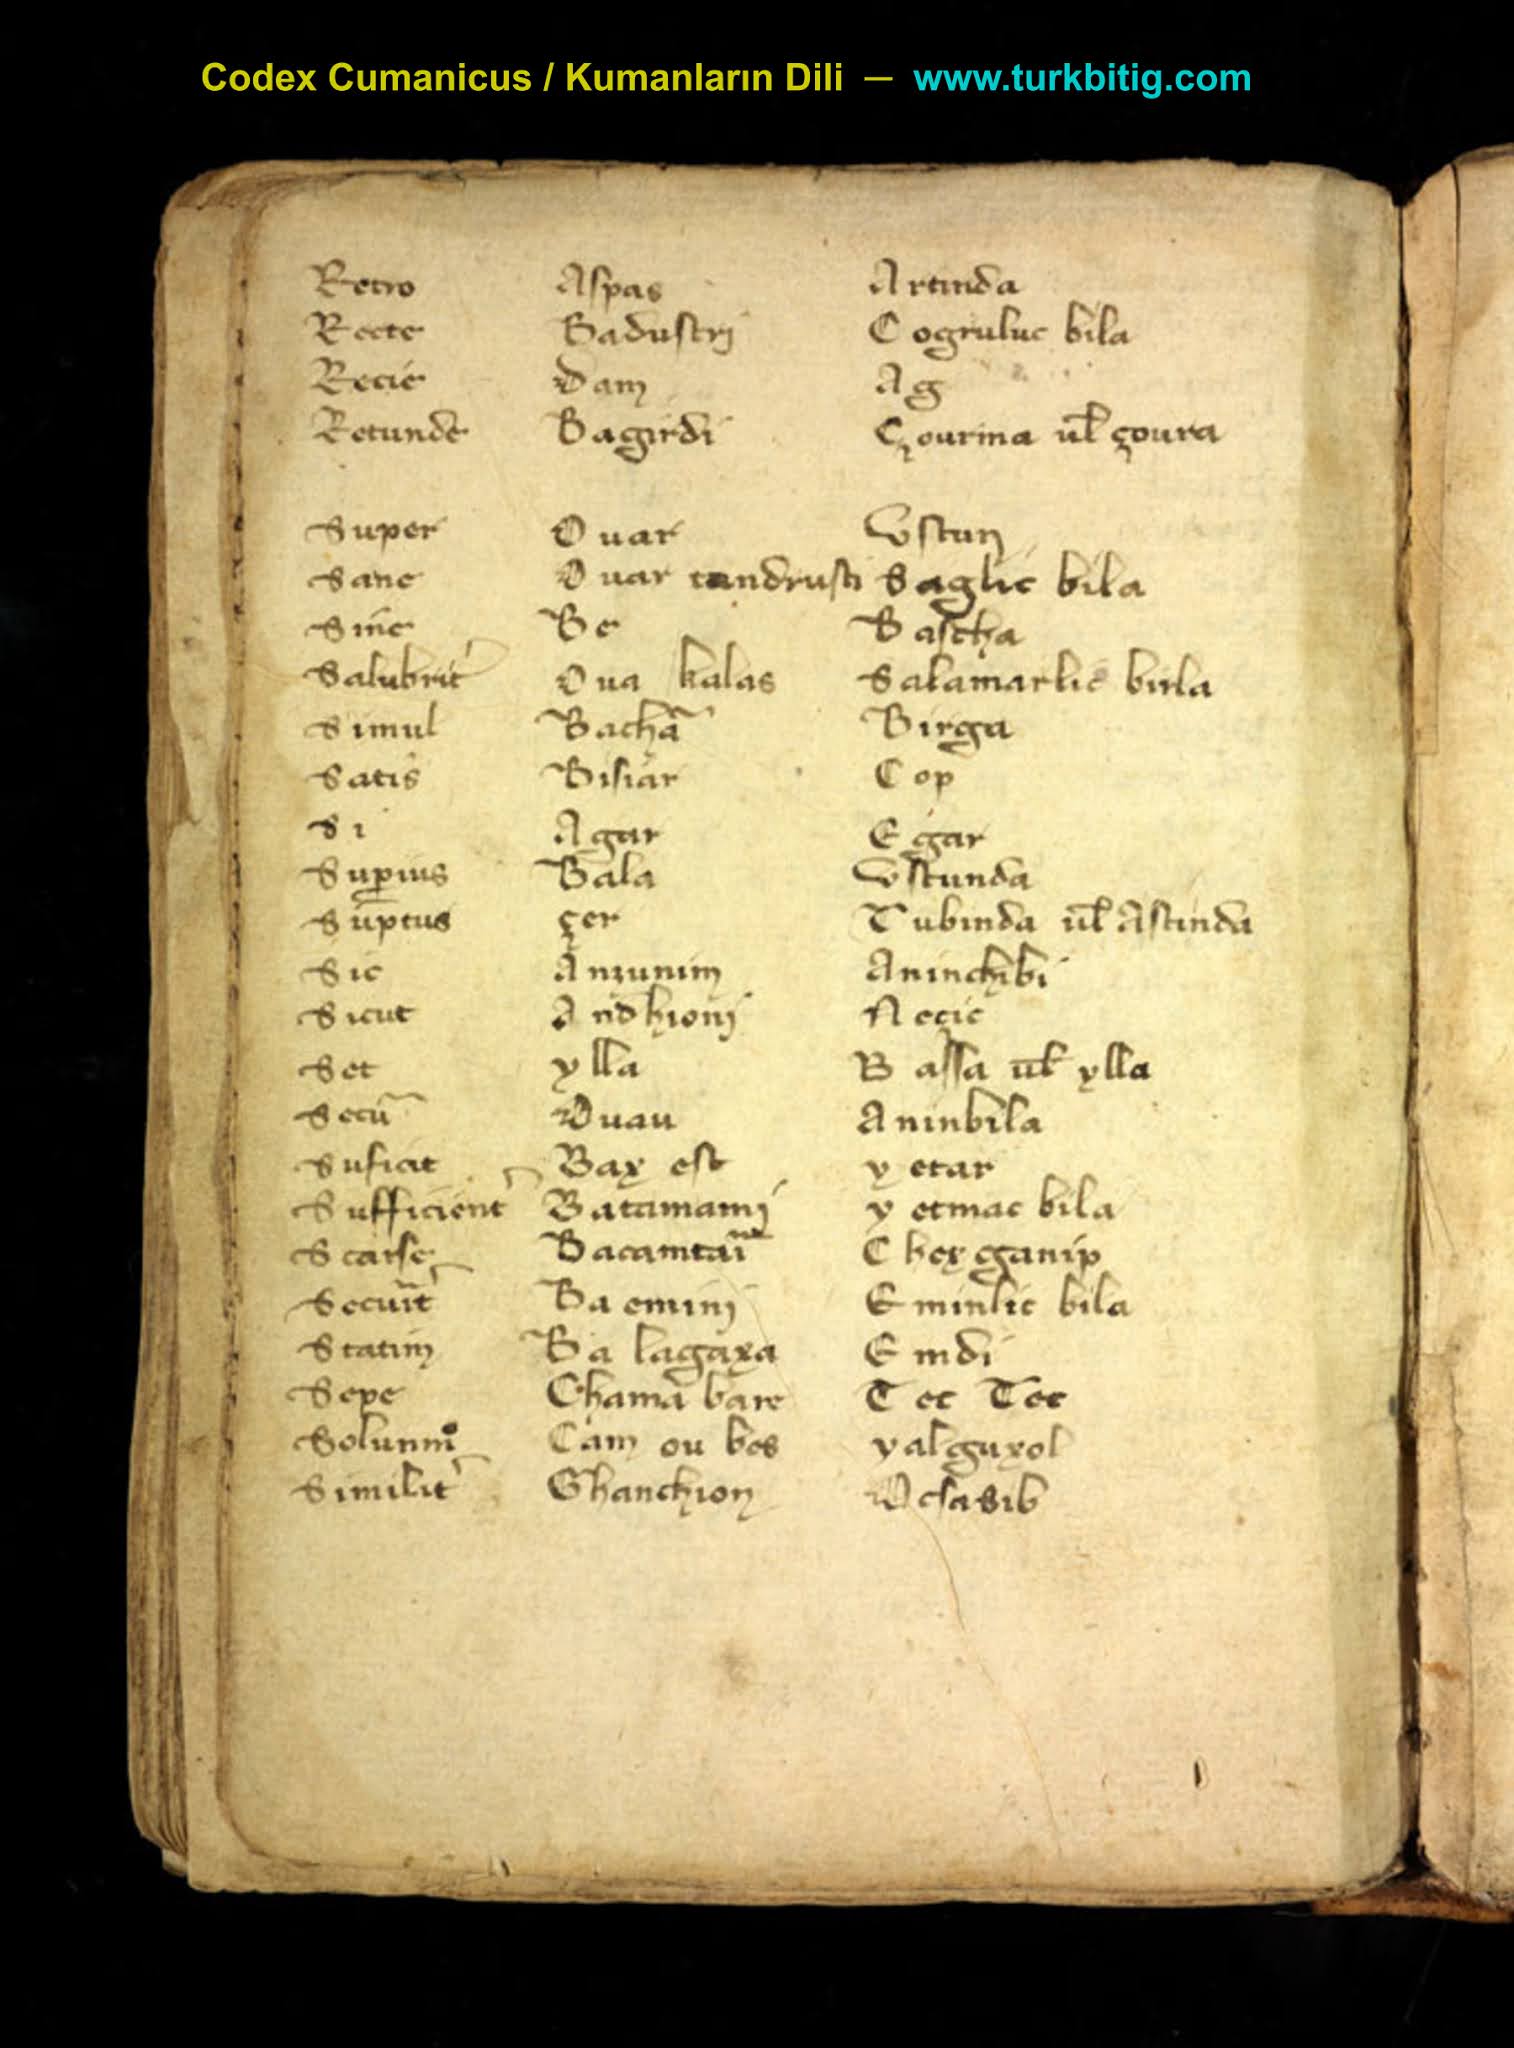 Codex Cumanicus / Kumanların Dili — www.turkbitig.com
Retro Aspas Artinda
Recte Badustri Cogruluc bila
Recie Dam Ag
Retunde Bagirdi Çourina uł çoura
Super Ouar Vstun
Sane Ouar tandrusti Saglic bila
Sine Be Bascha
Salubrit᷎ Oua kalas Salamatlic birla
Simul Bachã Birga
Satis Bisiar Cop
Si Agar Egar
Supius Bala Vstunda
Suptus çer Tubinda uł Astinda
Sic Anzunim Aninchibi
Sicut Andkioni Neçic
Set ylla Bassa uł ylla
Secũ Ouau Aninbila
Suficit Bax est yetar
Sufficient Batamami yetmac bila
Scarse Bacamtai
Secuit Ba emini Eminlic bila
Statim Ba lagaxa Emdi
Sepe Chama bare Tec Tec
Cam ou bes yalguxol
Similit Ghanchion Ocsasib